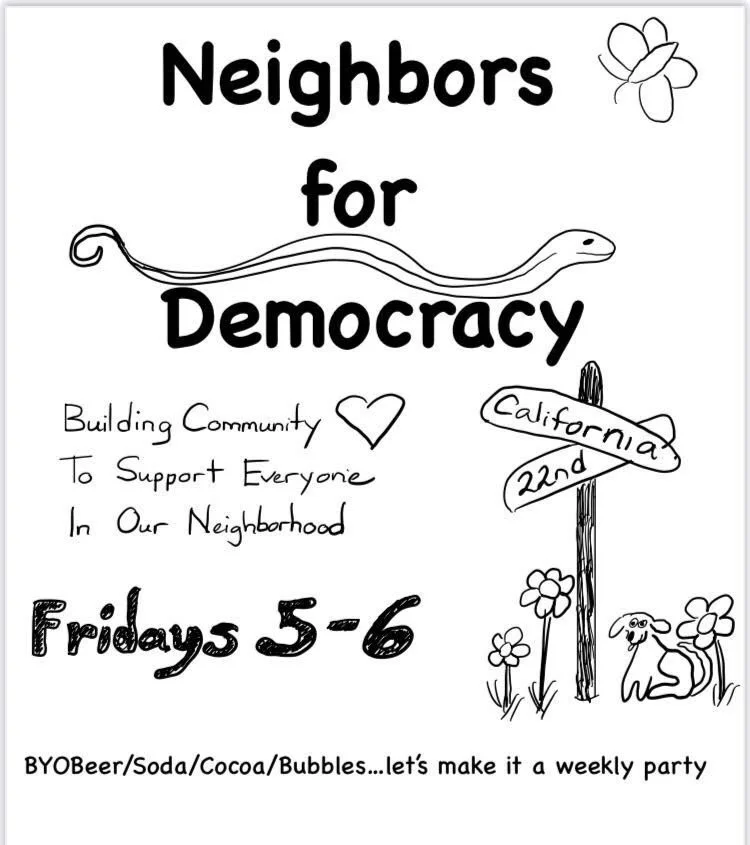 Neighbors
for
Democracy
Building Community
To Support Everyone
In Our Neighborhood
California
22nd
Fridays 5-6
BYOBeer/Soda/Cocoa/Bubbles...let's make it a weekly party